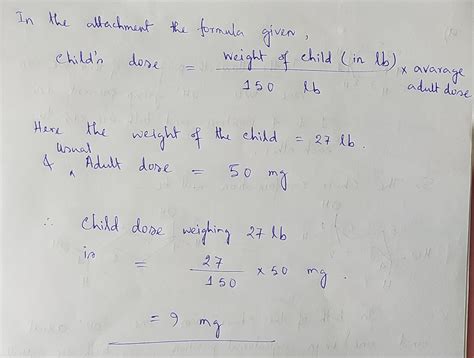 In the attachment the formula given,
Child's dose = weight of child (in lb) / 150 lb × avarage adult dose
Here the weight of the child = 27 lb.
& Usual Adult dose = 50 mg
∴ Child dose weighing 27 lb
is = 27 / 150 × 50 mg.
= 9 mg